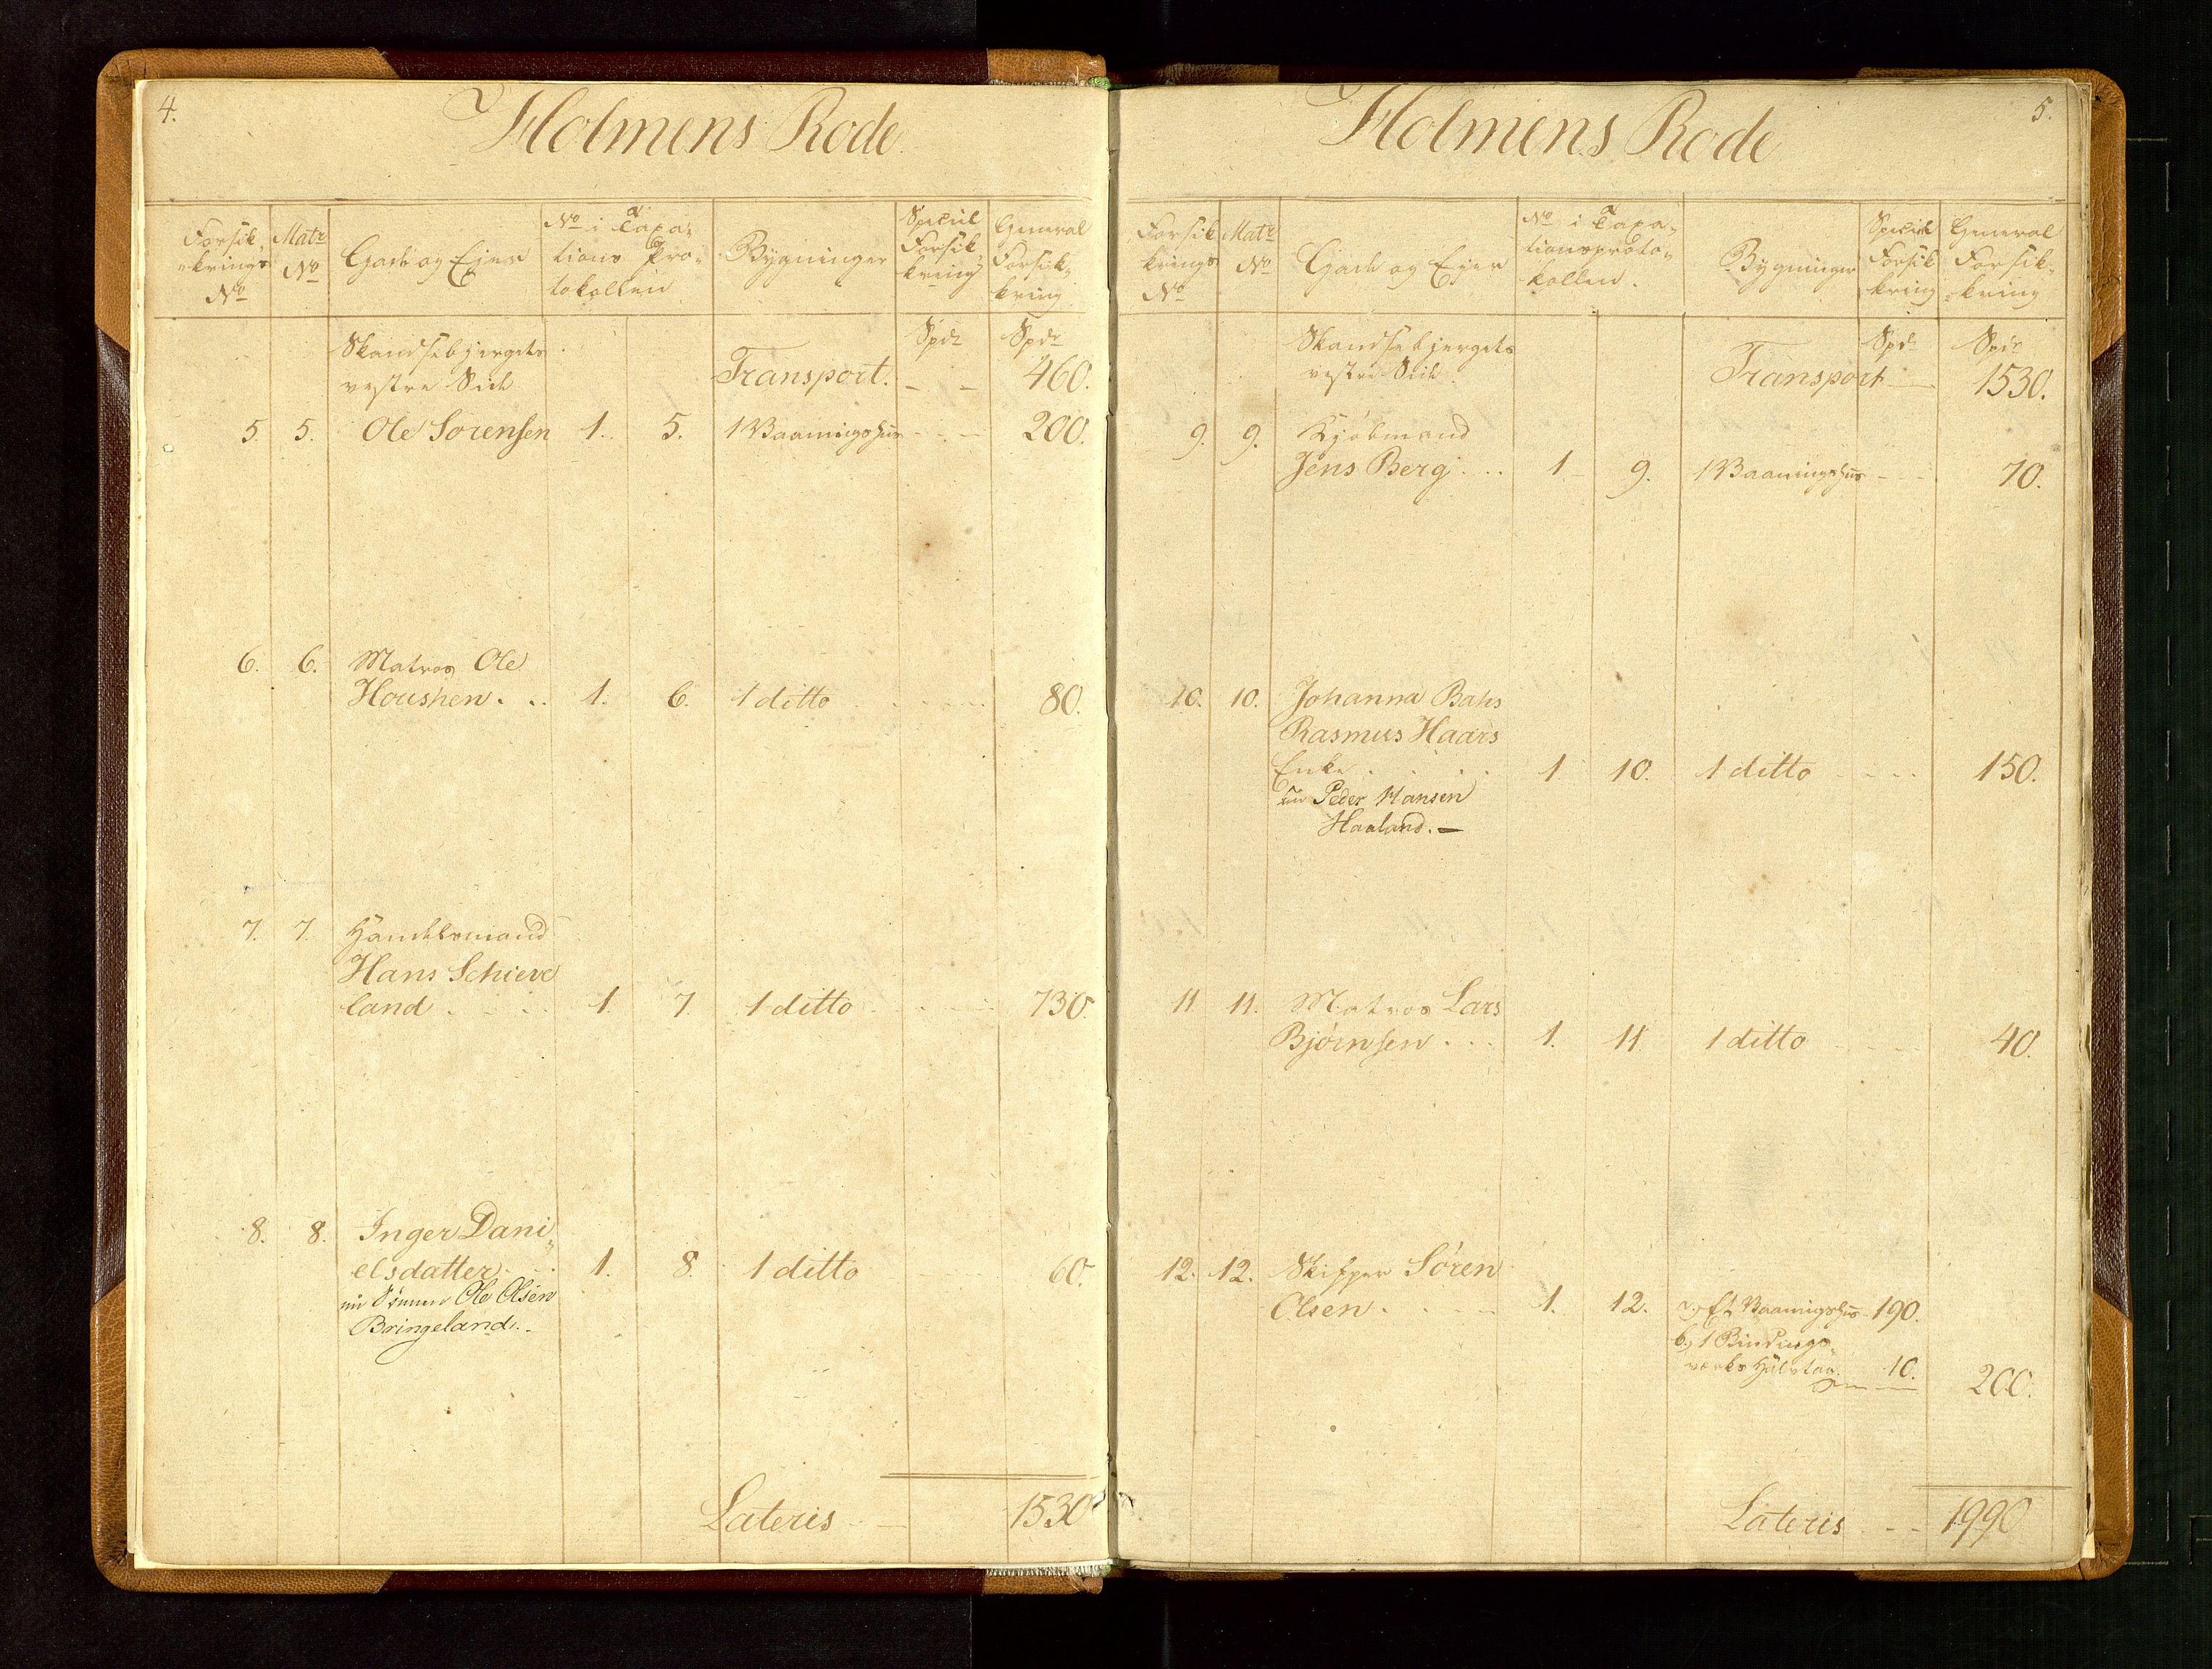 4.
Holmens Rode.
Forsik„
„krings
No
Matr
No
Gade og Ejer
No i Taxa„
tions Pro„
tokollen
Bygninger
Speciel
Forsik„
kring
General
Forsik„
kring
Skandsebjergets
vestre Side
Spdr
Spdr
Transport. – – 460.
5. 5. Ole Sørensen 1. 5. 1 Vaaningshus - - - 200.
6. 6. Matros Ole
Houshen . .. 1. 6. 1 ditto . . . . . 80.
7. 7. Handelsmand
Hans Schieve
land . . . . 1. 7. 1 ditto . . . . . 730.
8. 8. Inger Dani„
elsdatter . . . 1. 8. 1 ditto 60.
nu Sønnen Ole Olsen
Bringeland. -
Lateris - — 1530
5.
Holmens Rode
Forsik
krings
No
Matr
No
Gade og Ejer
No i Taxa„
tionsproto„
kollen.
Bygninger
Speciel
Forsik
kring
General
Forsik„
kring
Skandsebjergets
vestre Side
Spdr
Spdr
Transport — 1530.
9. 9. Kjøbmand
Jens Berg . .. 1 9. 1 Vaaningshus - - - 70.
10. 10. Johanna Bahs
Rasmus Haars
Enke . . . . 1 10. 1 ditto - - - . 150.
nu Peder Hansen
Haaland. —
11 11. Matros Lars
Bjørnsen . . . 1. 11 1 ditto 40.
12. 12. Skipper Søren
Olsen . . . - - 1. 12. a, Et Vaaningshus 190.
b, 1 Bindings„
værks 10. 200.
Lateris - - 1990